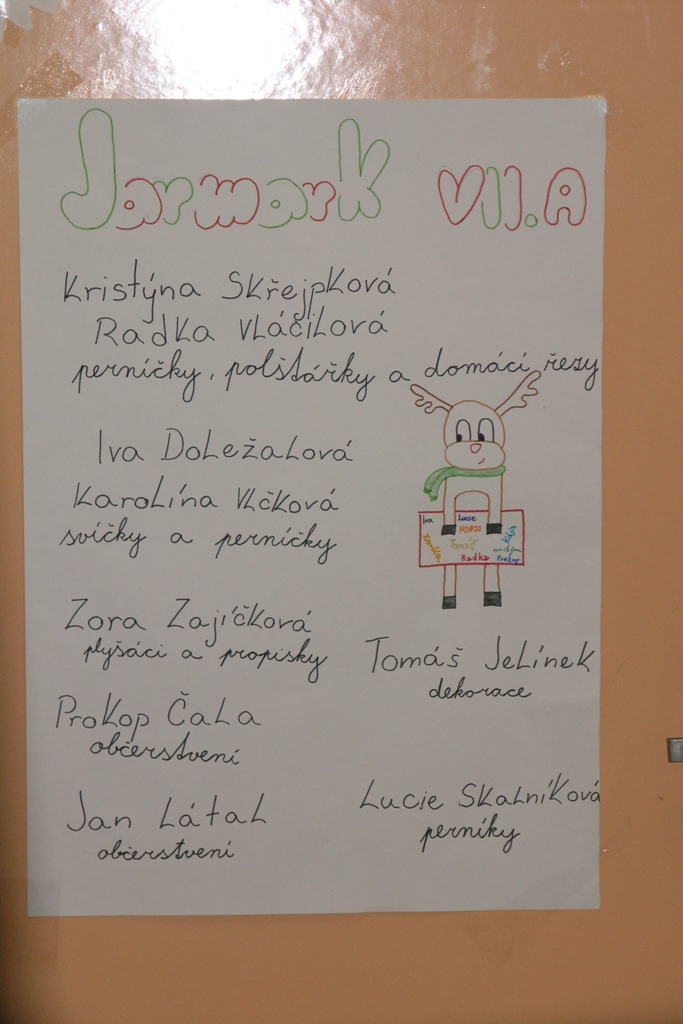 Jarmark VII.A
Kristýna Skřejpková
Radka Vláčilová
perníčky, polštářky a domácí řezy
Iva Doležalová
Karolína Vlčková
svíčky a perníčky
Iva Lucie
HONZA
Tomáš Kája
Radka Prokop
Zora Zajíčková
plyšáci a propisky
Tomáš Jelínek
dekorace
Prokop Čala
občerstvení
Jan Látal
občerstvení
Lucie Skalníková
perníky